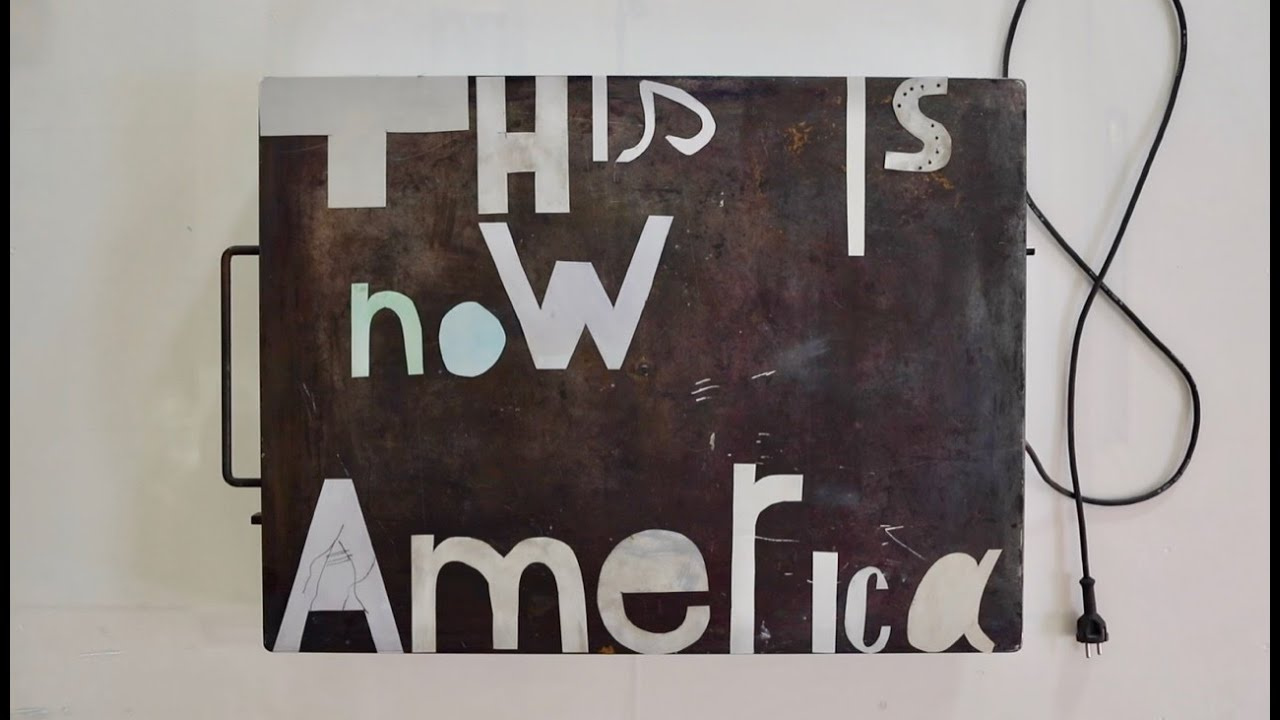 THIS IS
noW
America